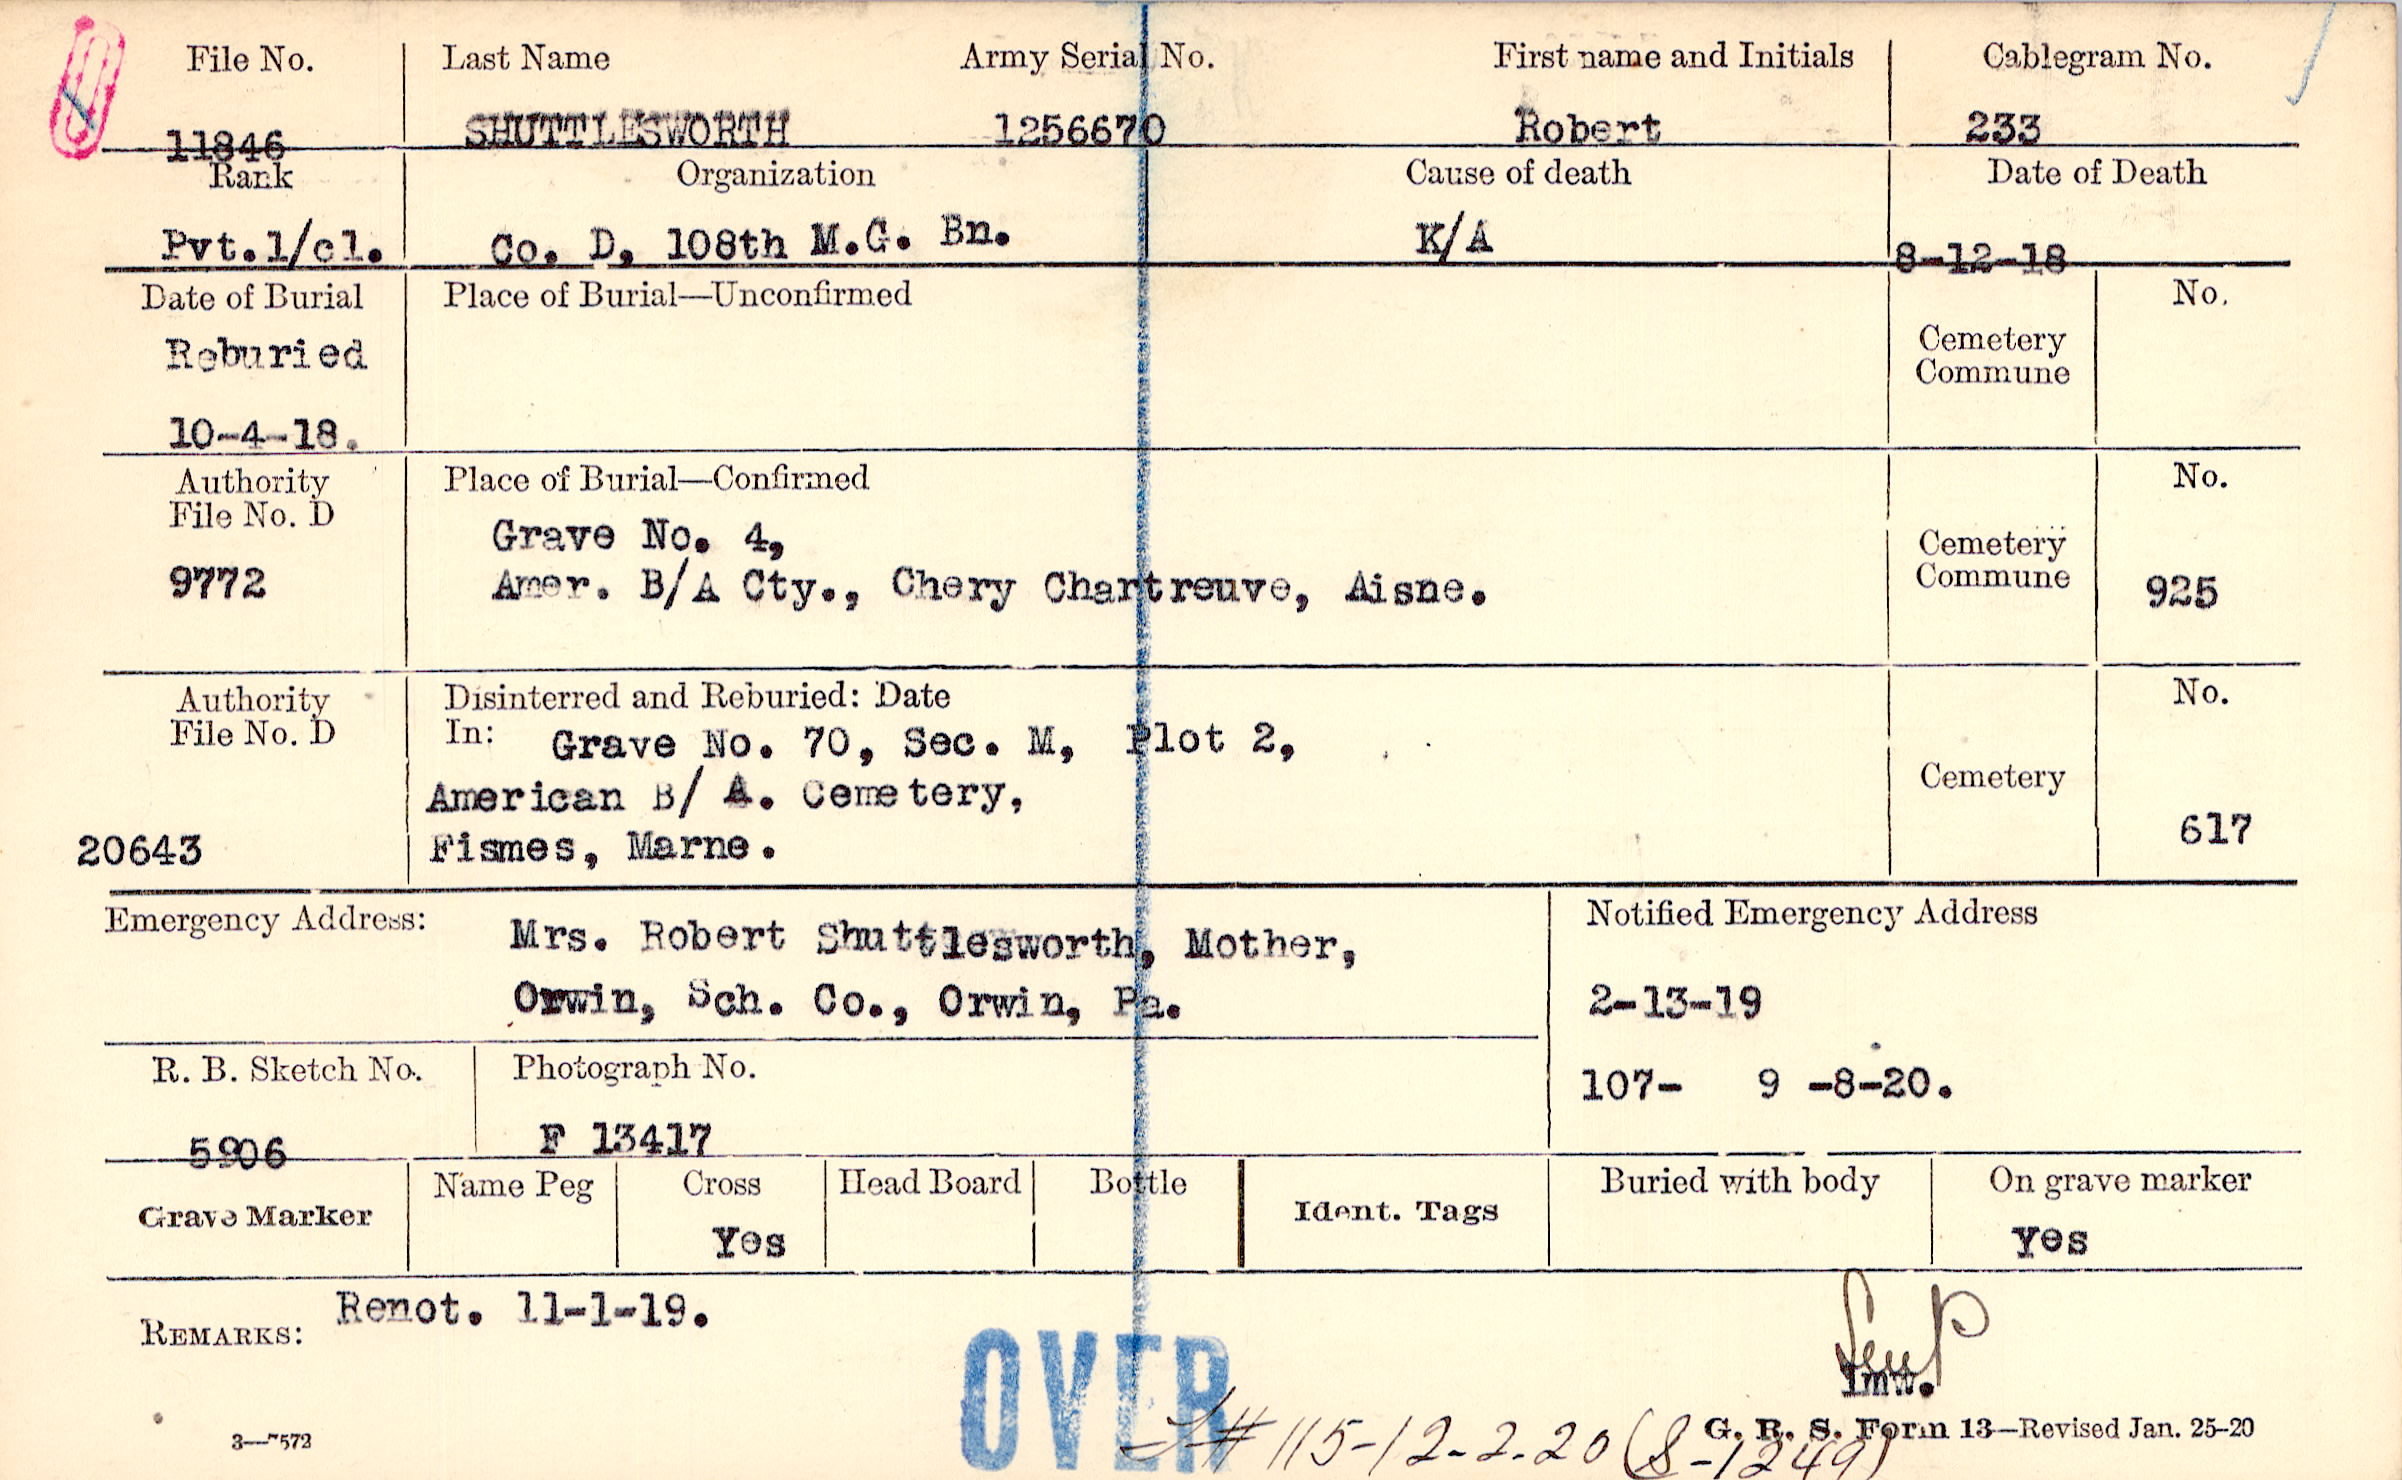 File No.
Last Name
Army Serial No.
First name and Initials
Cablegram No.
11846
SHUTTLESWORTH
1256670
Robert
233
Rank
Organization
Cause of death
Date of Death
Pvt.1/cl.
Co. D, 108th M.G. Bn.
K/A
8-12-18
Date of Burial
Place of Burial—Unconfirmed
No.
Reburied
Cemetery
Commune
10-4-18.
Authority
File No. D
Place of Burial—Confirmed
No.
Grave No. 4,
9772
Amer. B/A Cty., Chery Chartreuve, Aisne.
Cemetery
Commune
925
Authority
File No. D
Disinterred and Reburied: Date
No.
In: Grave No. 70, Sec. M, Plot 2,
American B/ A. Cemetery,
Cemetery
20643
Fismes, Marne.
617
Emergency Address:
Mrs. Robert Shuttlesworth, Mother,
Orwin, Sch. Co., Orwin, Pa.
Notified Emergency Address
2-13-19
107- 9 -8-20.
R. B. Sketch No.
Photograph No.
5906
F 13417
Grave Marker
Name Peg
Cross
Head Board
Bottle
Ident. Tags
Buried with body
On grave marker
Yes
Yes
REMARKS:
Renot. 11-1-19.
lmw.
OVER
# 115-12-2-20 (S-1249)
3—7572
G. R. S. Form 13—Revised Jan. 25-20